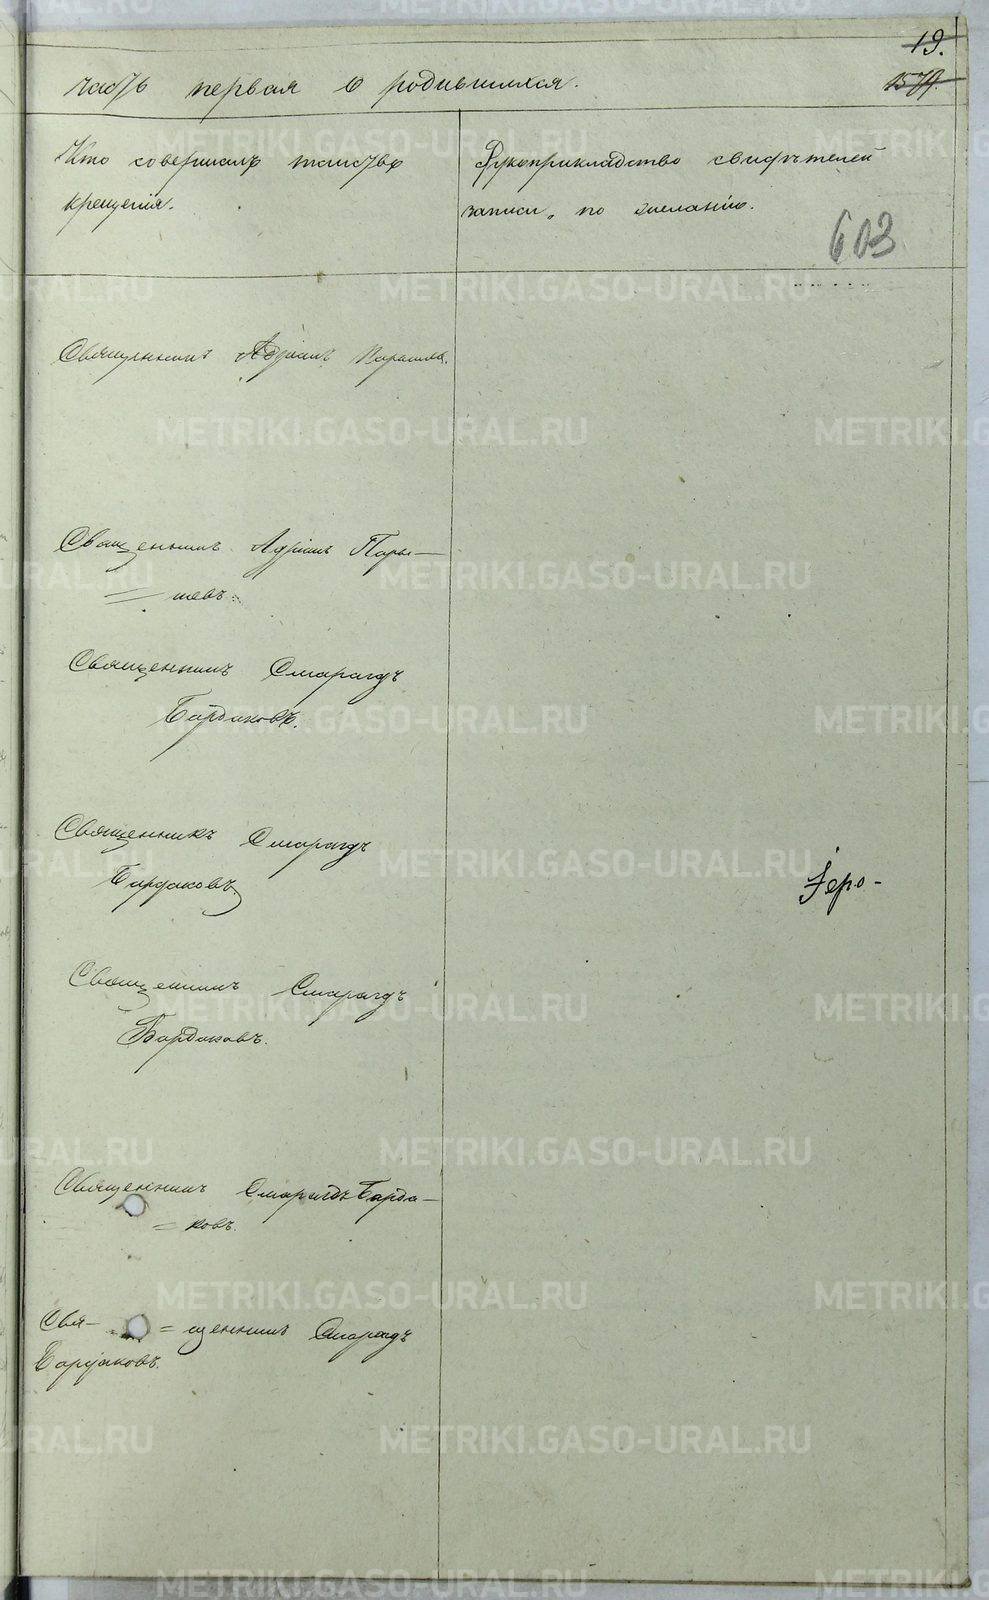 19.
1579.
часть первая о родившихся.
Кто совершалъ таинство
крещенія.
Рукоприкладство свидѣтелей
записи, по желанію.
603
Священникъ Адріанъ
Священникъ Адріанъ Пары-
= шевъ.
Священникъ Смарагдъ
Бардаковъ.
Священникъ Смарагдъ
Бардаковъ.
Іеро-
Священникъ Смарагдъ
Бардаковъ.
Священникъ Смарагдъ Барда-
= ковъ.
Свя- = щенникъ Смарагдъ
Бардаковъ.
METRIKI.GASO-URAL.RU